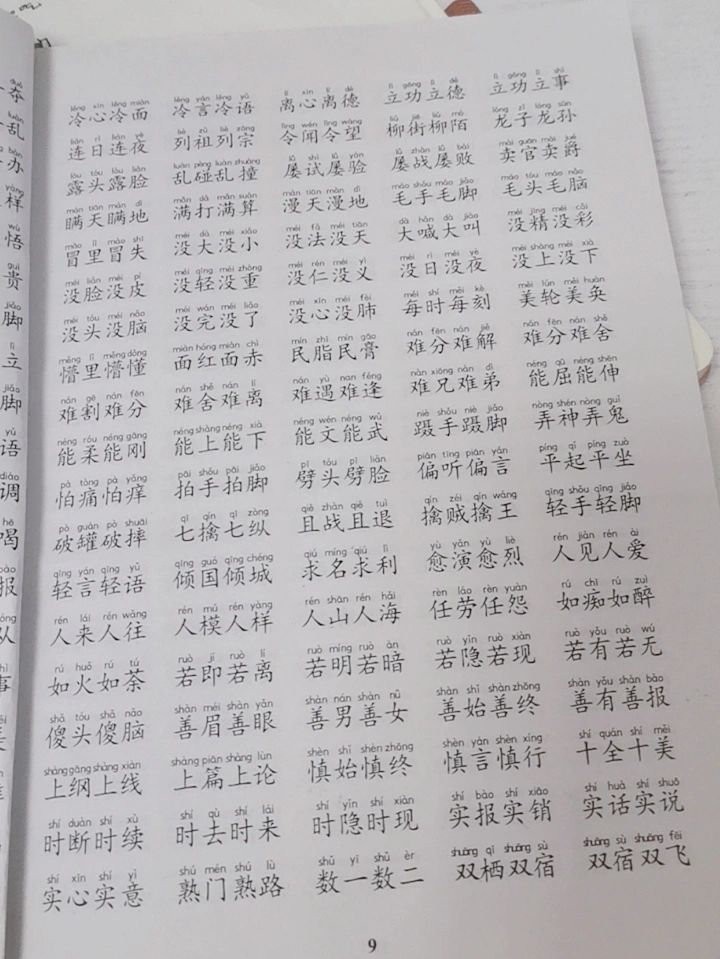 lěng xīn lěng miàn lěng yán lěng yǔ lí xīn lí dé lì gōng lì dé lì gōng lì shì
冷心冷面 冷言冷语 离心离德 立功立德 立功立事
lián rì lián yè liè zǔ liè zōng lìng wén lìng wàng liǔ jiē liǔ mò lóng zǐ lóng sūn
连日连夜 列祖列宗 令闻令望 柳街柳陌 龙子龙孙
lòu tóu lòu liǎn luàn pèng luàn zhuàng lǚ shì lǚ yàn lǚ zhàn lǚ bài mài guān mài jué
露头露脸 乱碰乱撞 屡试屡验 屡战屡败 卖官卖爵
mán tiān mán dì mǎn dǎ mǎn suàn màn tiān màn dì máo shǒu máo jiǎo máo tóu máo nǎo
瞒天瞒地 满打满算 漫天漫地 毛手毛脚 毛头毛脑
mào lǐ mào shī méi dà méi xiǎo méi fǎ méi tiān dà hǎn dà jiào méi jīng méi cǎi
冒里冒失 没大没小 没法没天 大喊大叫 没精没彩
méi liǎn méi pí méi qīng méi zhòng méi rén méi yì méi rì méi yè méi shàng méi xià
没脸没皮 没轻没重 没仁没义 没日没夜 没上没下
méi tóu méi nǎo méi wán méi liǎo méi xīn méi fèi měi shí měi kè měi lún měi huàn
没头没脑 没完没了 没心没肺 每时每刻 美轮美奂
měng lǐ měng dǒng miàn hóng miàn chì mín zhī mín gāo nán fēn nán jiě nán fēn nán shě
懵里懵懂 面红面赤 民脂民膏 难分难解 难分难舍
nán gē nán fēn nán shě nán lí nán yù nán féng nàn xiōng nàn dì néng qū néng shēn
难割难分 难舍难离 难遇难逢 难兄难弟 能屈能伸
néng róu néng gāng néng shàng néng xià néng wén néng wǔ niè shǒu niè jiǎo nòng shén nòng guǐ
能柔能刚 能上能下 能文能武 蹑手蹑脚 弄神弄鬼
pà tòng pà yǎng pāi shǒu pāi jiǎo pī tóu pī liǎn piān tīng piān yán píng qǐ píng zuò
怕痛怕痒 拍手拍脚 劈头劈脸 偏听偏言 平起平坐
pò guàn pò shuāi qī qín qī zòng qiě zhàn qiě tuì qín zéi qín wáng qīng shǒu qīng jiǎo
破罐破摔 七擒七纵 且战且退 擒贼擒王 轻手轻脚
qīng yán qīng yǔ qīng guó qīng chéng qiú míng qiú lì yù yǎn yù liè rén jiàn rén ài
轻言轻语 倾国倾城 求名求利 愈演愈烈 人见人爱
rén lái rén wǎng rén mú rén yàng rén shān rén hǎi rèn láo rèn yuàn rú chī rú zuì
人来人往 人模人样 人山人海 任劳任怨 如痴如醉
rú huǒ rú tú ruò jí ruò lí ruò míng ruò àn ruò yǐn ruò xiàn ruò yǒu ruò wú
如火如荼 若即若离 若明若暗 若隐若现 若有若无
shǎ tóu shǎ nǎo shàn méi shàn yǎn shàn nán shàn nǚ shàn shǐ shàn zhōng shàn yǒu shàn bào
傻头傻脑 善眉善眼 善男善女 善始善终 善有善报
shàng gāng shàng xiàn shàng piān shàng lùn shèn shǐ shèn zhōng shèn yán shèn xíng shí quán shí měi
上纲上线 上篇上论 慎始慎终 慎言慎行 十全十美
shí duàn shí xù shí qù shí lái shí yǐn shí xiàn shí bào shí xiāo shí huà shí shuō
时断时续 时去时来 时隐时现 实报实销 实话实说
shí xīn shí yì shú mén shú lù shǔ yī shǔ èr shuāng qī shuāng sù shuāng sù shuāng fēi
实心实意 熟门熟路 数一数二 双栖双宿 双宿双飞
9
duó
夺
乱
bàn
办
yàng
样
wù
悟
guì
贵
jiǎo
脚
lì
立
jiǎo
脚
yǔ
语
diào
调
hē
喝
bào
报
队
shì
事